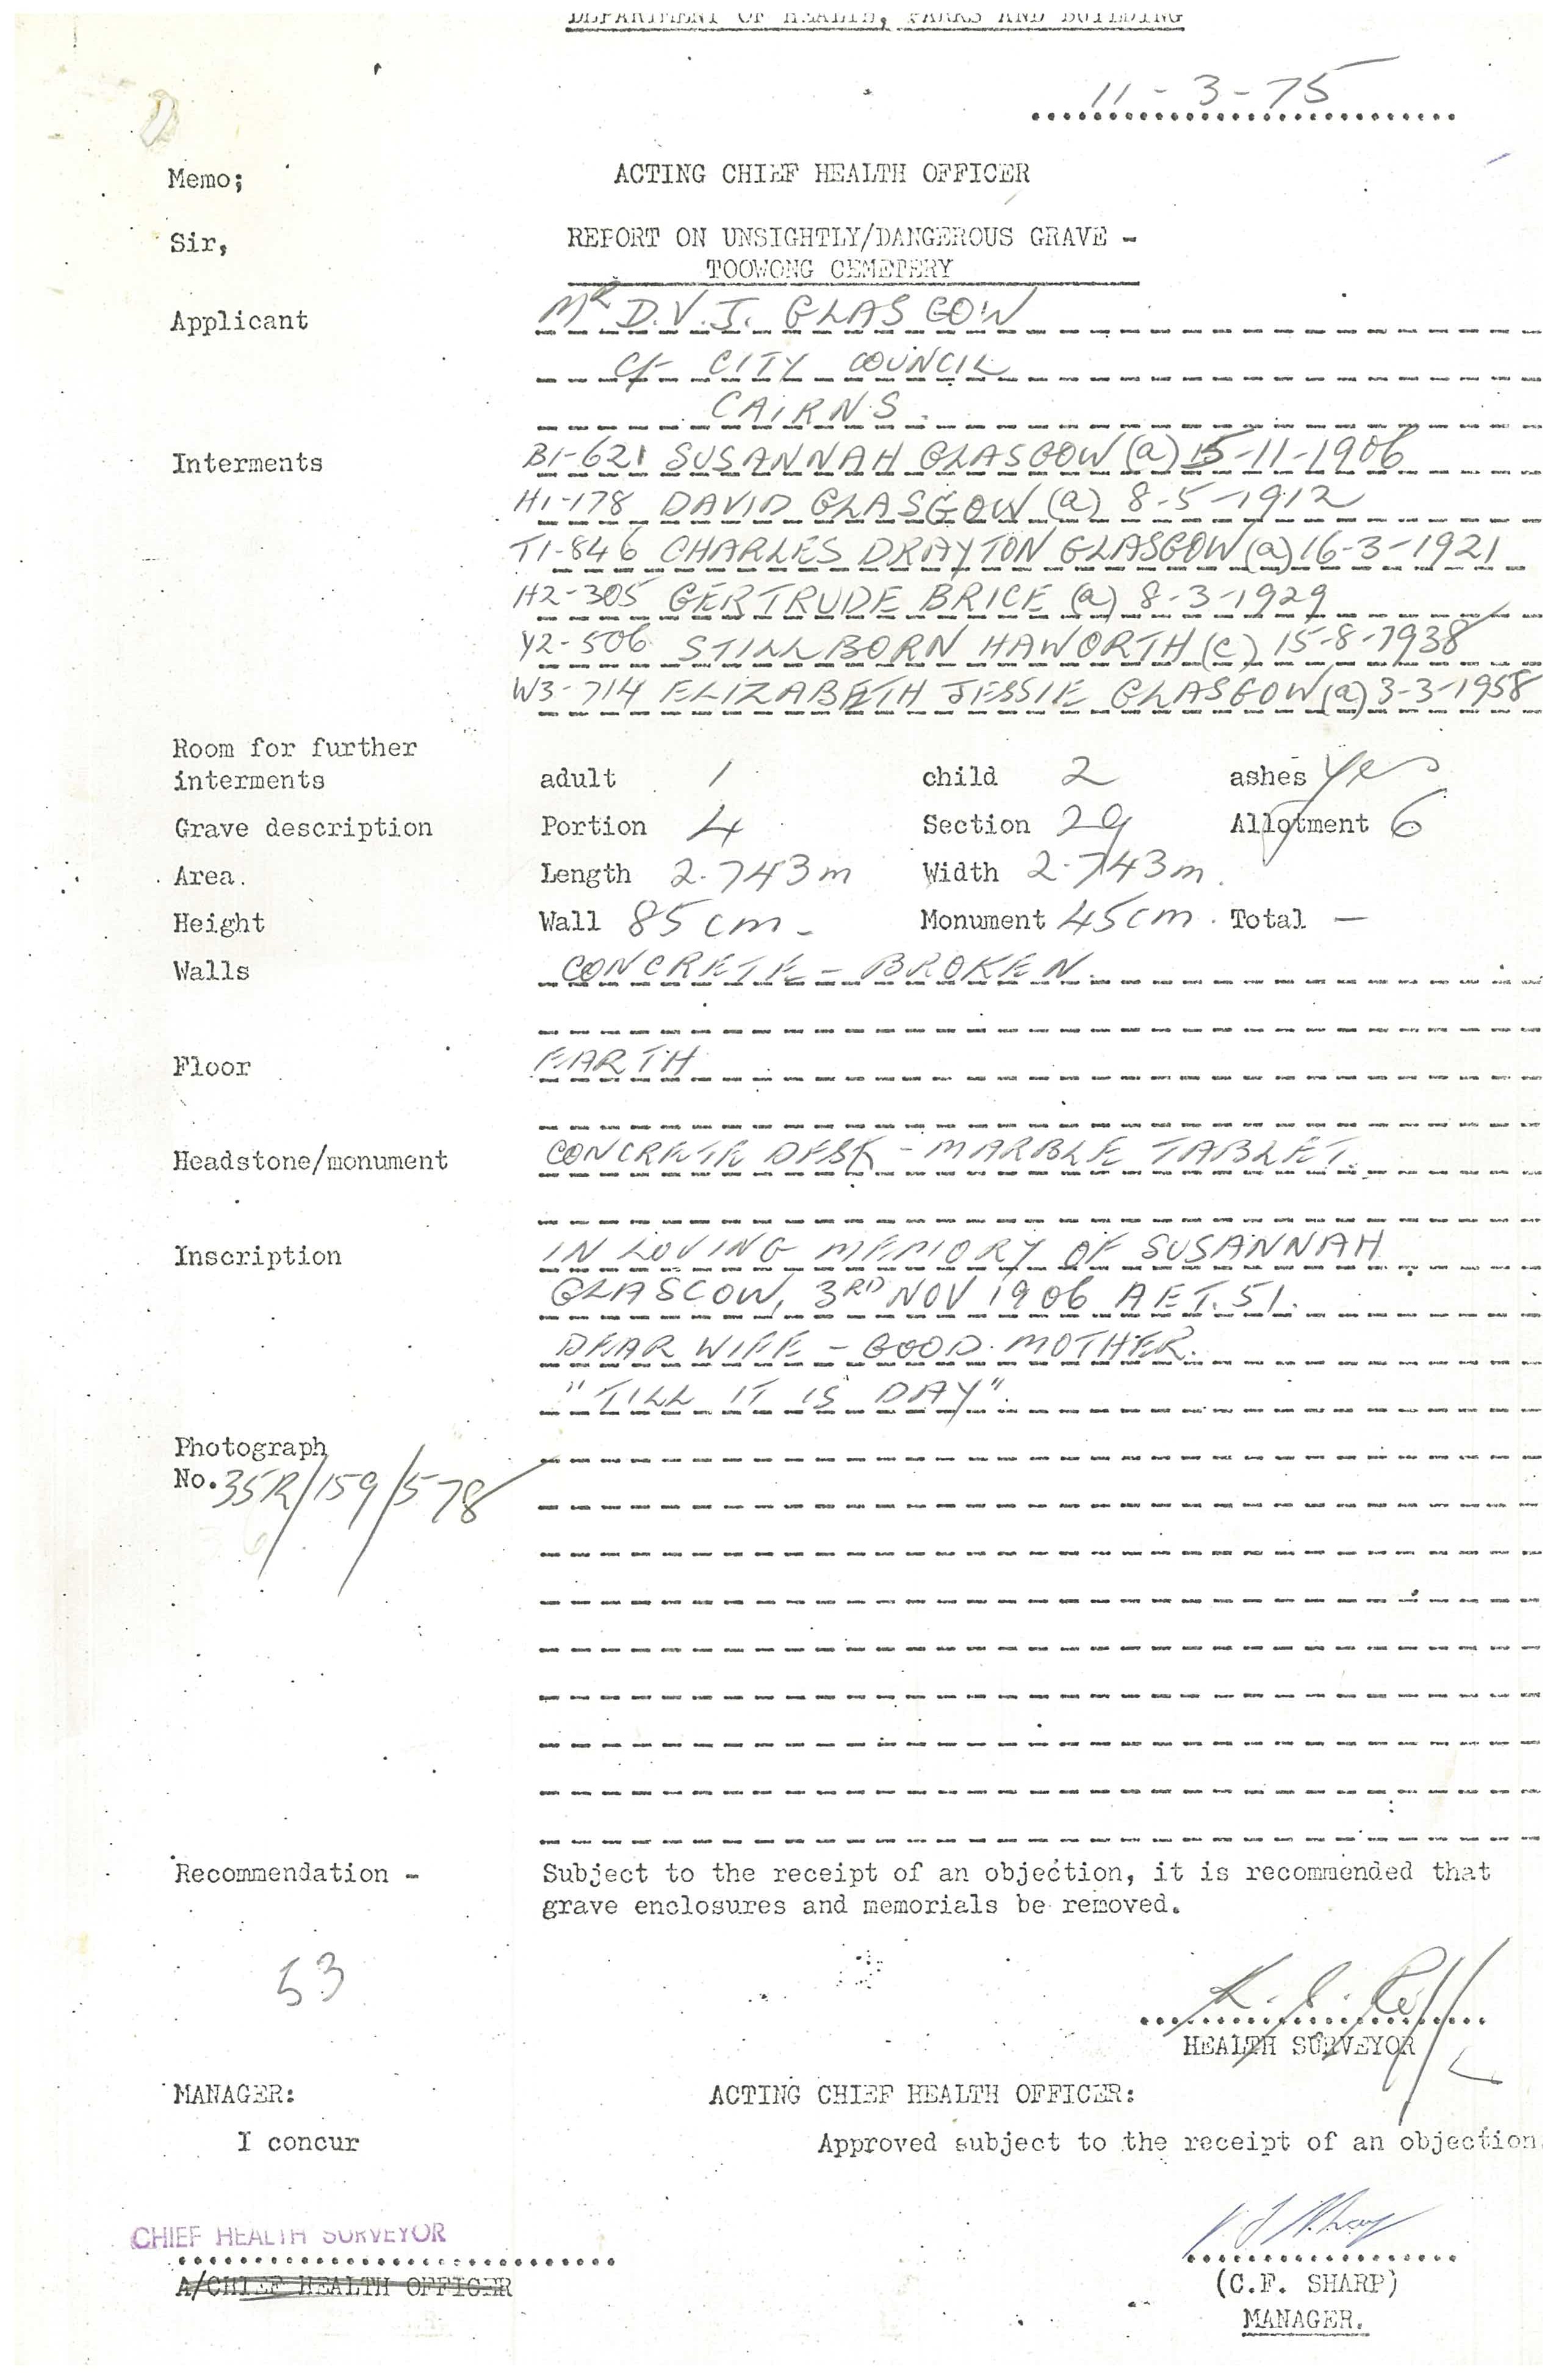 DEPARTMENT OF HEALTH, PARKS AND BUILDING
11-3-75
Memo; ACTING CHIEF HEALTH OFFICER
Sir, REPORT ON UNSIGHTLY/DANGEROUS GRAVE -
TOOWONG CEMETERY
Applicant MR D.V.J. GLASGOW
C/- CITY COUNCIL
CAIRNS.
Interments B1-621 SUSANNAH GLASGOW (a) 5-11-1906
H1-178 DAVID GLASGOW (a) 8-5-1912
T1-846 CHARLES DRAYTON GLASGOW (a) 16-3-1921
H2-305 GERTRUDE BRICE (a) 8-3-1929
Y2-506 STILLBORN HAWORTH (c) 15-8-1938
W3-714 ELIZABETH JESSIE GLASGOW (a) 3-3-1958
Room for further
interments adult 1 child 2 ashes Yes
Grave description Portion 4 Section 29 Allotment 6
Area. Length 2.743m Width 2.743m.
Height Wall 85cm - Monument 45cm. Total -
Walls CONCRETE - BROKEN.
Floor EARTH
Headstone/monument CONCRETE DESK - MARBLE TABLET.
Inscription IN LOVING MEMORY OF SUSANNAH
GLASCOW, 3RD NOV 1906 AET. 51.
DEAR WIFE - GOOD MOTHER.
"TILL IT IS DAY".
Photograph
No. 35R/159/578
Recommendation - Subject to the receipt of an objection, it is recommended that
grave enclosures and memorials be removed.
53
HEALTH SURVEYOR
MANAGER: ACTING CHIEF HEALTH OFFICER:
I concur Approved subject to the receipt of an objection.
CHIEF HEALTH SURVEYOR
A/CHIEF HEALTH OFFICER
(C.F. SHARP)
MANAGER.